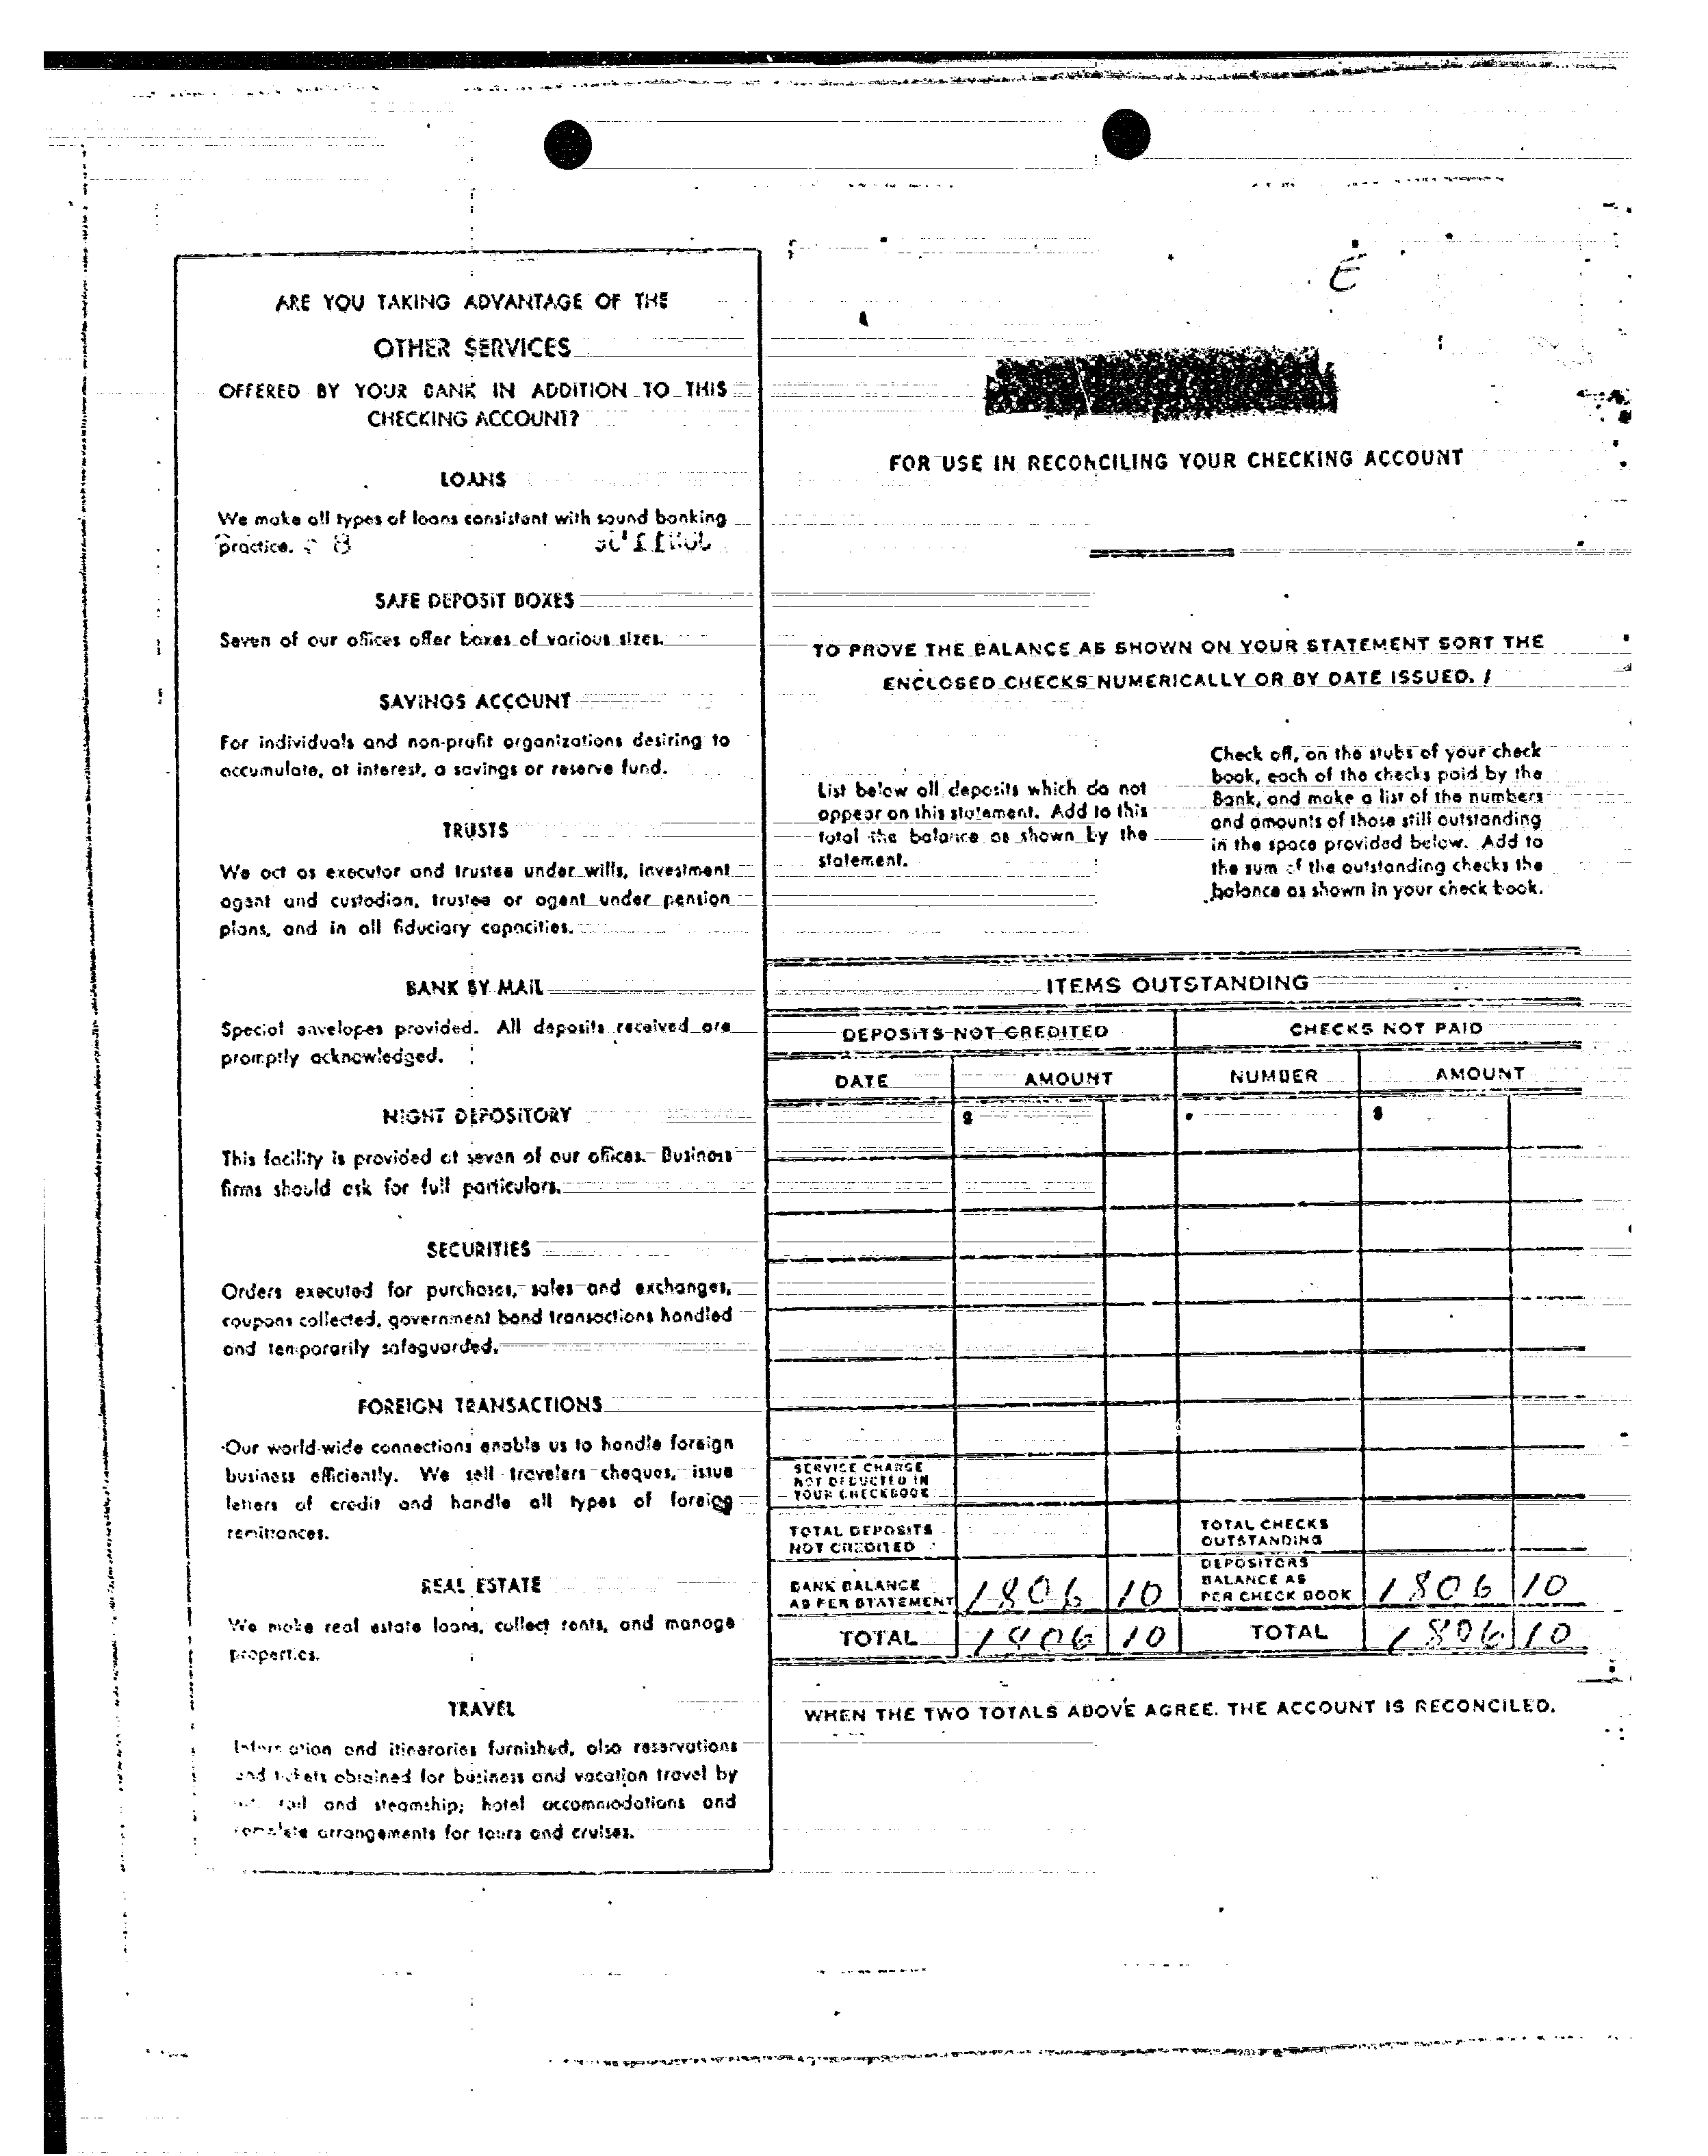 E
ARE YOU TAKING ADVANTAGE OF THE
OTHER SERVICES
OFFERED BY YOUR BANK IN ADDITION TO THIS
CHECKING ACCOUNT?
LOANS
We make all types of loans consistent with sound banking
practice.
SAFE DEPOSIT BOXES
Seven of our offices offer boxes of various sizes.
SAVINGS ACCOUNT
For individuals and non-profit organizations desiring to
accumulate, at interest, a savings or reserve fund.
TRUSTS
We act as executor and trustee under wills, investment
agent and custodian, trustee or agent under pension
plans, and in all fiduciary capacities.
BANK BY MAIL
Special envelopes provided. All deposits received are
promptly acknowledged.
NIGHT DEPOSITORY
This facility is provided at seven of our offices. Business
firms should ask for full particulars.
SECURITIES
Orders executed for purchases, sales and exchanges,
coupons collected, government bond transactions handled
and temporarily safeguarded.
FOREIGN TRANSACTIONS
Our world-wide connections enable us to handle foreign
business efficiently. We sell travelers cheques, issue
letters of credit and handle all types of foreign
remittances.
REAL ESTATE
We make real estate loans, collect rents, and manage
properties.
TRAVEL
Information and itineraries furnished, also reservations
and tickets obtained for business and vacation travel by
rail and steamship; hotel accommodations and
complete arrangements for tours and cruises.
FOR USE IN RECONCILING YOUR CHECKING ACCOUNT
TO PROVE THE BALANCE AS SHOWN ON YOUR STATEMENT SORT THE
ENCLOSED CHECKS NUMERICALLY OR BY DATE ISSUED.
List below all deposits which do not
appear on this statement. Add to this
total the balance as shown by the
statement.
Check off, on the stubs of your check
book, each of the checks paid by the
Bank, and make a list of the numbers
and amounts of those still outstanding
in the space provided below. Add to
the sum of the outstanding checks the
balance as shown in your check book.
ITEMS OUTSTANDING
DEPOSITS NOT CREDITED CHECKS NOT PAID
DATE AMOUNT NUMBER AMOUNT
$ $
SERVICE CHARGE
NOT DEDUCTED IN
YOUR CHECKBOOK
TOTAL DEPOSITS
NOT CREDITED
TOTAL CHECKS
OUTSTANDING
BANK BALANCE
AS PER STATEMENT 1806 10
DEPOSITORS
BALANCE AS
PER CHECK BOOK 1806 10
TOTAL 1806 10 TOTAL 1806 10
WHEN THE TWO TOTALS ABOVE AGREE, THE ACCOUNT IS RECONCILED.